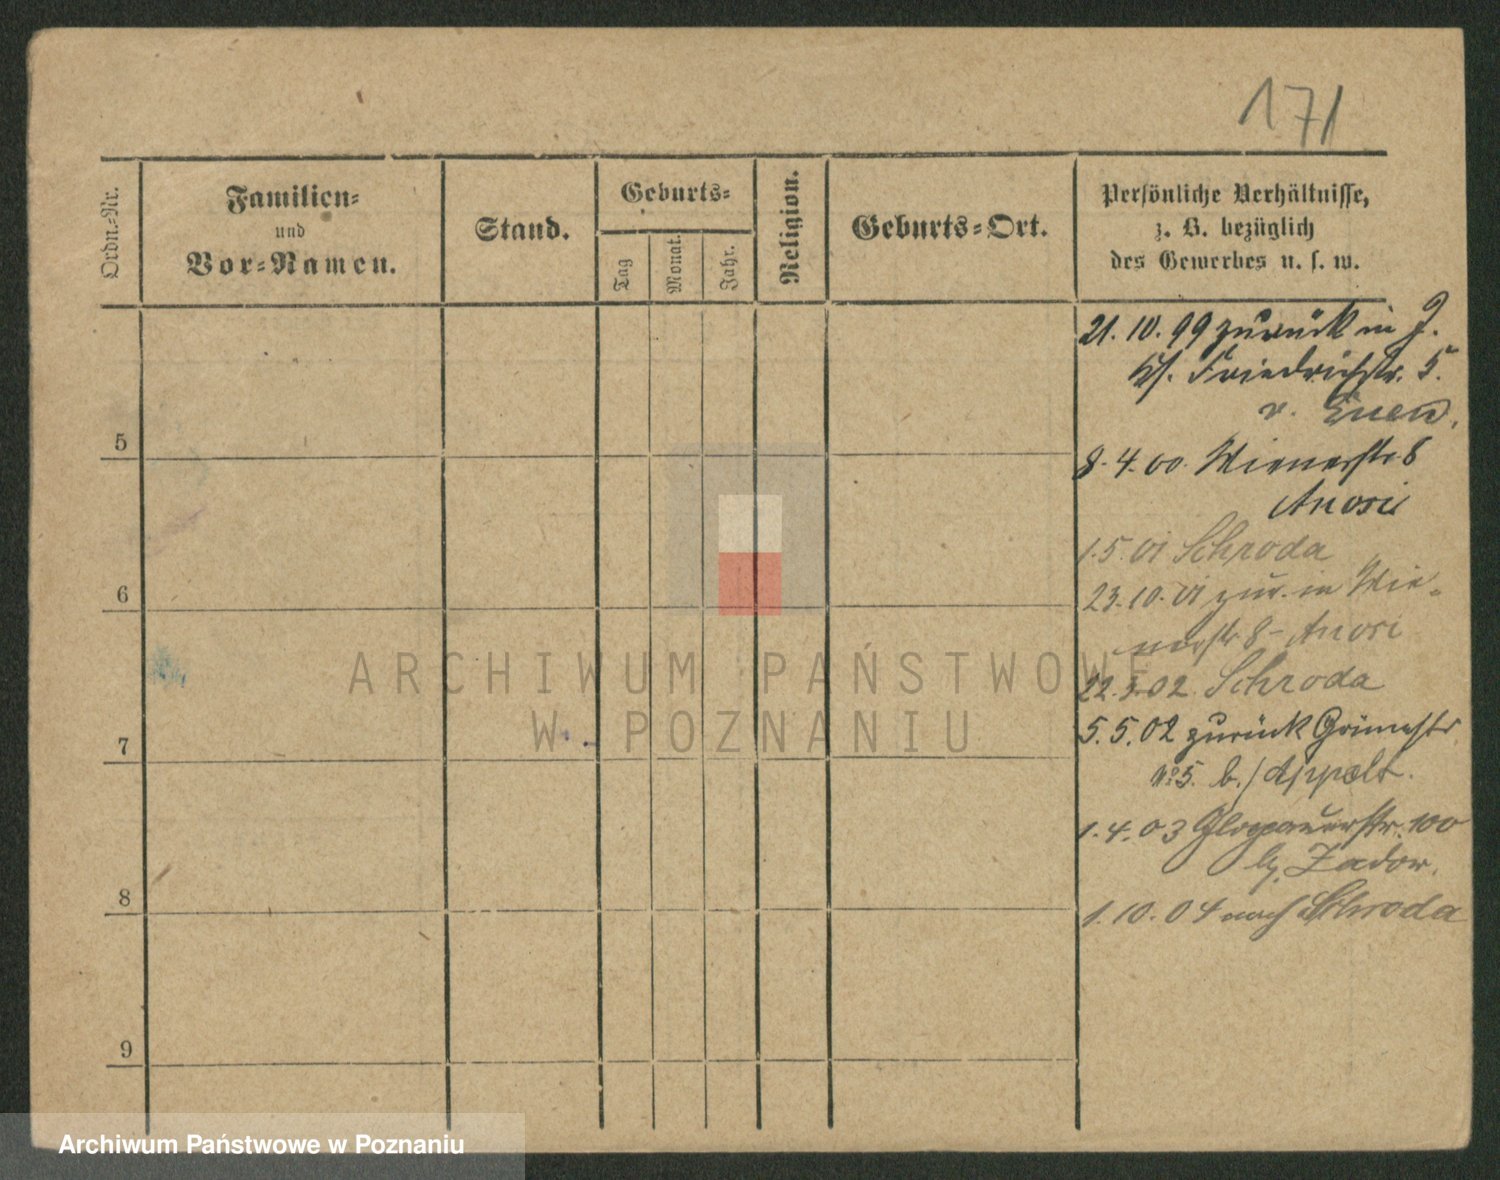 171
Ordn.=Nr.
Familien=
und
Vor=Namen.
Stand.
Geburts=
Tag
Monat.
Jahr.
Religion.
Geburts=Ort.
Persönliche Verhältnisse,
z. B. bezüglich
des Gewerbes u. s. w.
21. 10. 99 zurück in J.
Friedrichstr. 5.
v.
8. 4. 00. Wienerstr 8
Anori
1. 5. 01 Schroda
23. 10. 01 zur. in Wie=
nerstr 8 - Anori
02 Schroda
5. 5. 02 zurück
No 5. b./Appelt.
1. 4. 03 Glogauerstr. 100
b. Zadow.
1. 10. 04 nach Schroda
5
6
7
8
9
ARCHIWUM PAŃSTWOWE
W POZNANIU
Archiwum Państwowe w Poznaniu